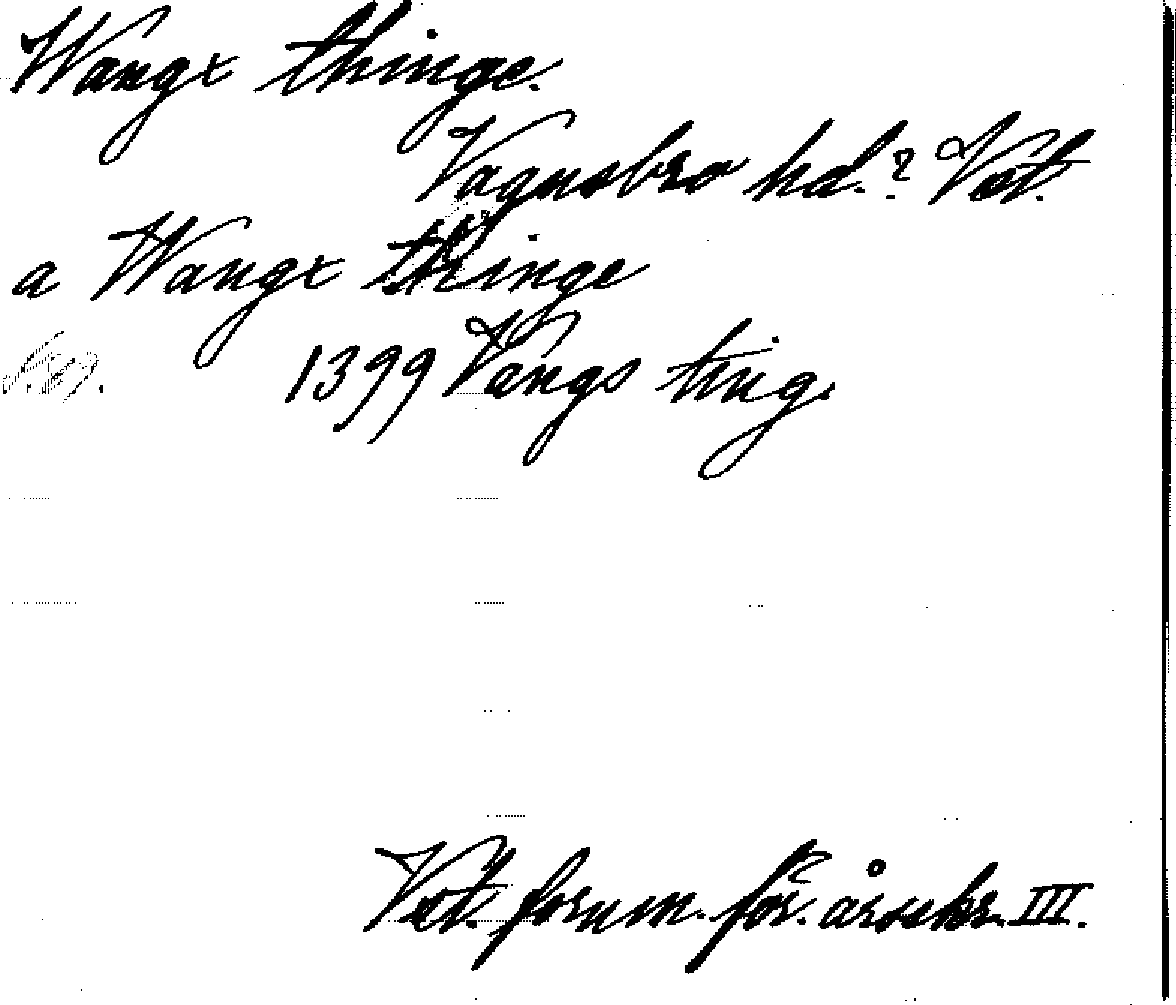 Wangx thinge.
Vagnsbro hd.? Vst.
a Wangx thinge
1399 Vangs ting.
Vst. fornm. för. årsskr. III.